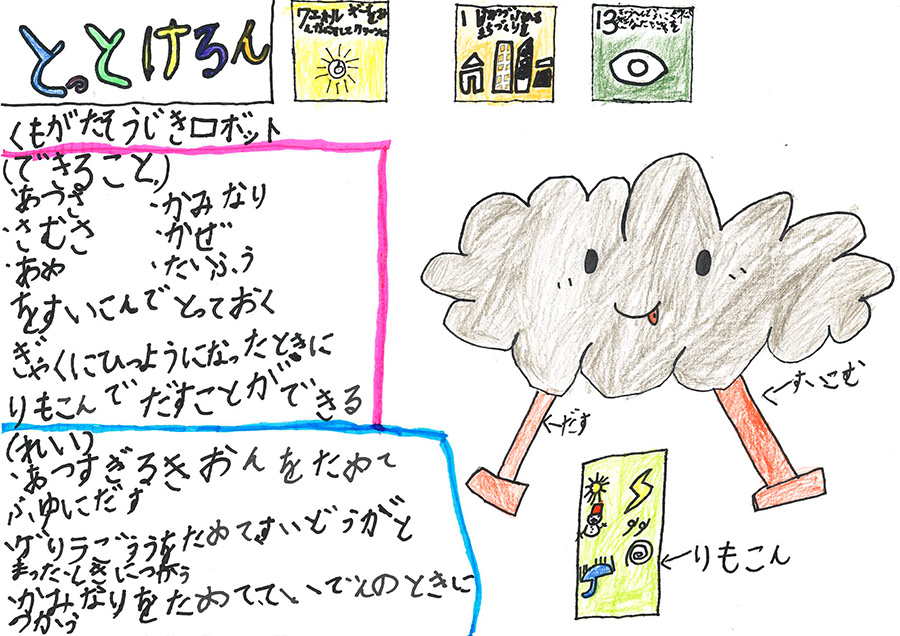 とっとけろん
7エネルギーをみんなにそしてクリーンに
11
まちづくりを
13
くもがたそうじきロボット
(できること)
・あつさ ・かみなり
・さむさ ・かぜ
・あめ ・たいふう
をすいこんでとっておく
ぎゃくにひつようになったときに
りもこんでだすことができる
(れい)
・あつすぎるきおんをためて
ふゆにだす
・ゲリラごううをためてすいどうがと
まったときにつかう
・かみなりをためてていでんのときに
つかう
←だす
←すいこむ
←りもこん